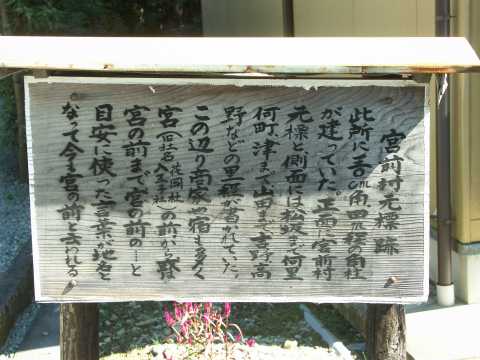 宮前村元標跡
此所に三〇cm角、四尺程の角柱
が建っていた。正面に宮前村
元標と側面には松坂まで何里
何町、津まで山田まで、吉野、高
野などの里程が書かれていた。
この辺り商家や宿も多く
宮(旧社名 花岡社 八王子社)の前から、発
宮の前まで、宮の前の…と
目安に使った言葉が地名と
なって今も宮の前と云われる